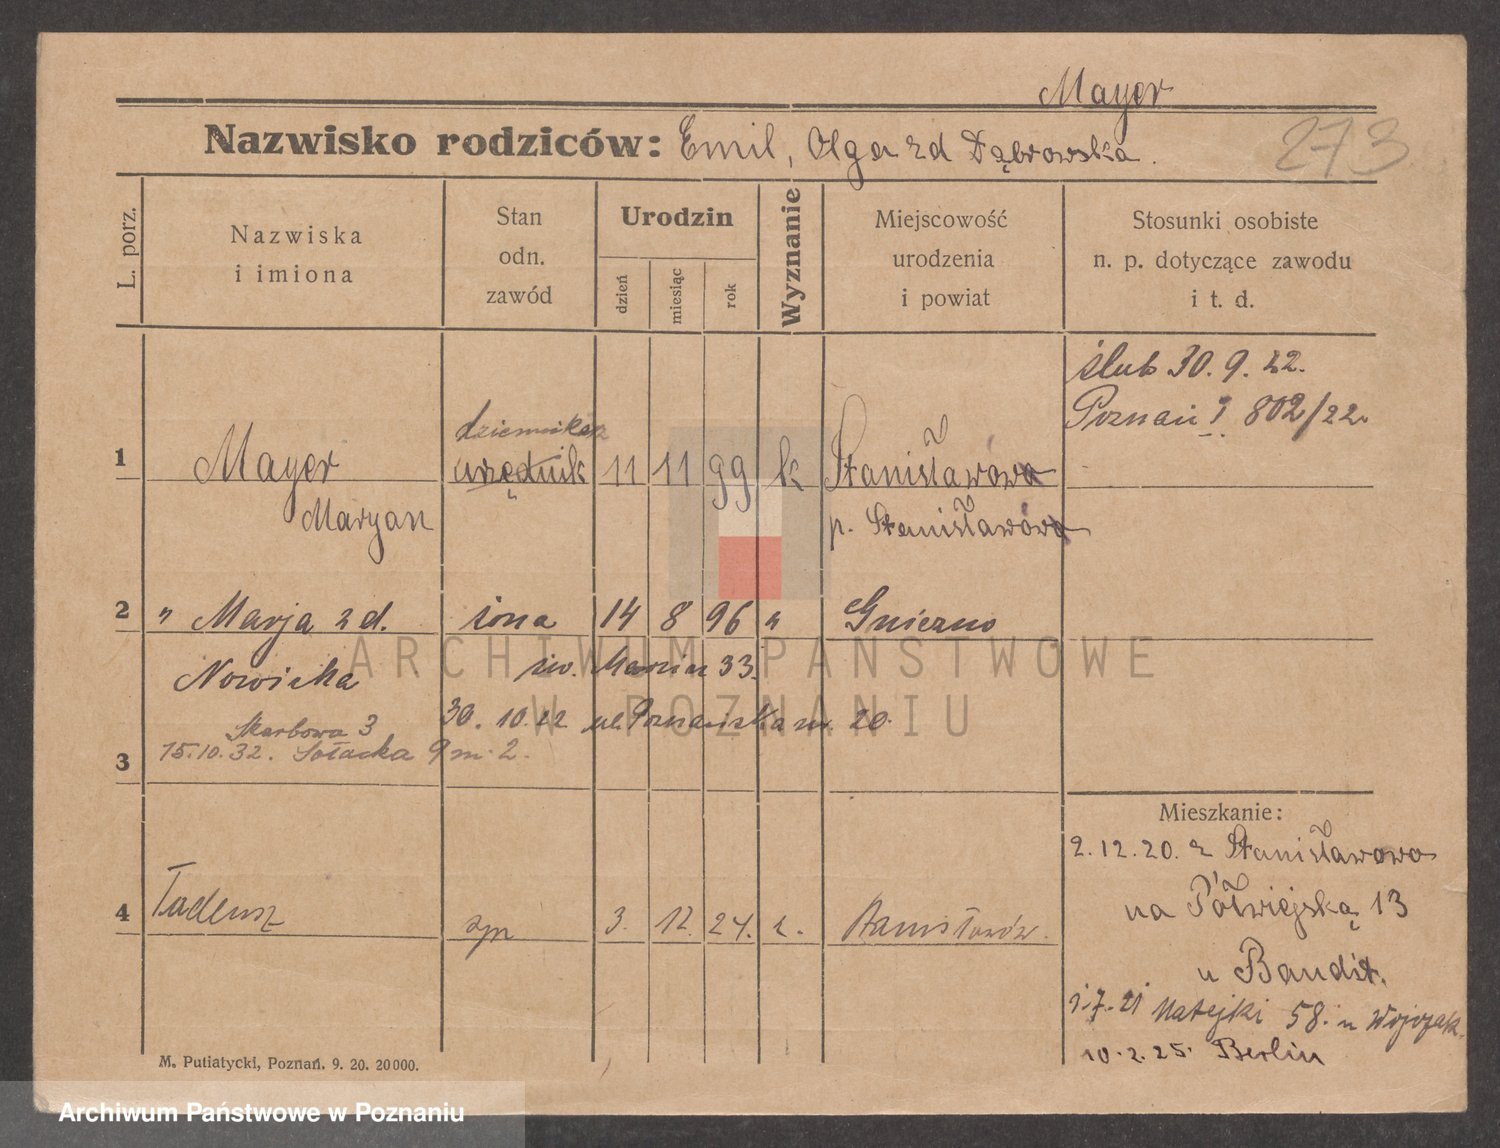 Mayer
Nazwisko rodziców: Emil, Olga zd Dąbrowska.
273
L. porz.
Nazwiska
i imiona
Stan
odn.
zawód
Urodzin
dzień
miesiąc
rok
Wyznanie
Miejscowość
urodzenia
i powiat
Stosunki osobiste
n. p. dotyczące zawodu
i t. d.
ślub 30. 9. 22.
Poznań I 802/22.
dziennikarz
1 Mayer urzędnik 11 11 99 k Stanisławowo
Maryan p. Stanisławowo
2 " Marja zd. żona 14 8 96 " Gniezno
Nowicka św. Marcin 33.
30. 10. 22 ul. Poznańska nr. 20.
Skarbowa 3
15.10.32. Sołacka 9 m. 2.
3
Mieszkanie:
2.12.20. z Stanisławowo
na Półwiejską 13
u Bandit.
4 Tadeusz syn 3. 12. 24. k. Stanisławów.
1.7.21 Matejki 58. u Wojczak.
10.2.25. Berlin
M. Putiatycki, Poznań. 9. 20. 20000.
ARCHIWUM PAŃSTWOWE
W POZNANIU
Archiwum Państwowe w Poznaniu